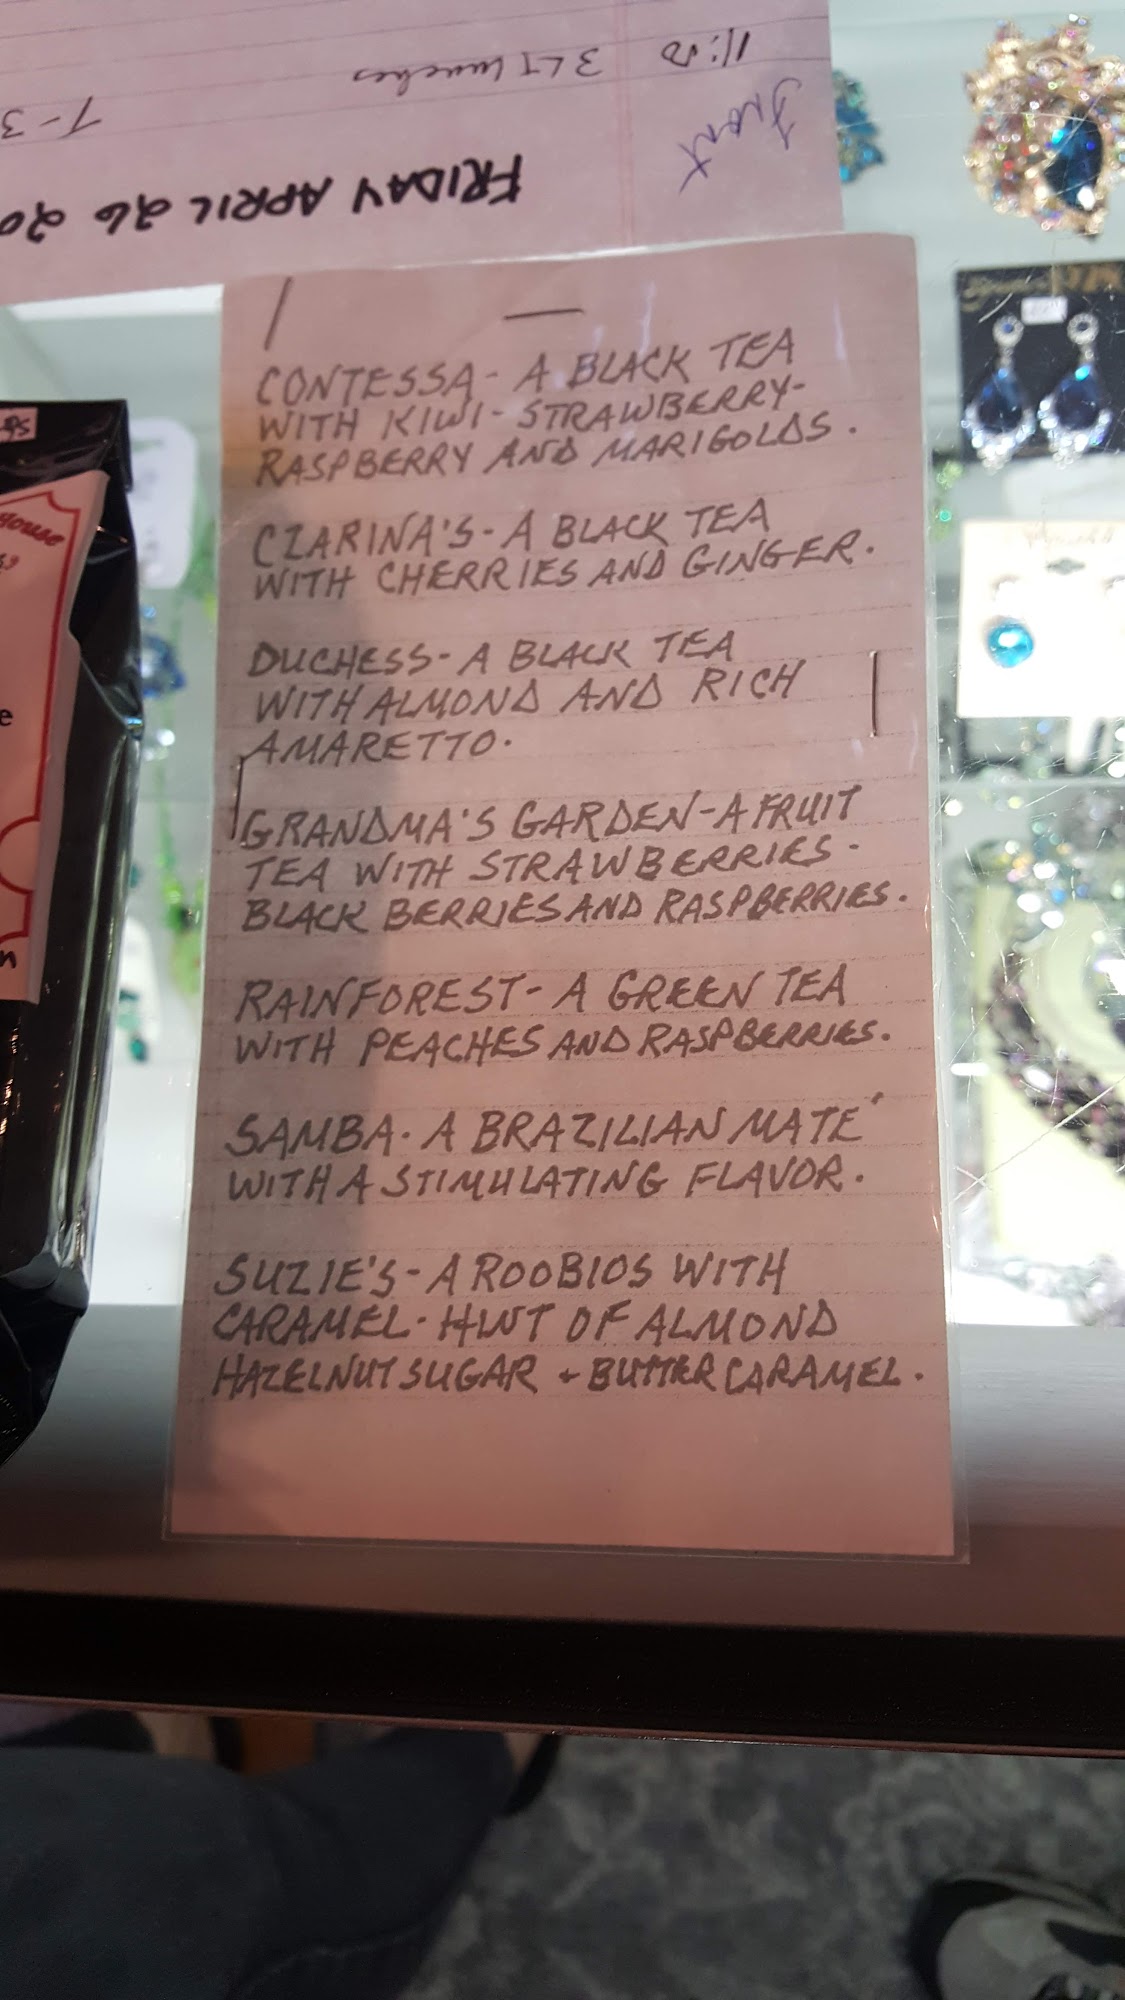 11:00 3 LT lunches
T-3
Front
FRIDAY APRIL 26 20
CONTESSA - A BLACK TEA
WITH KIWI - STRAWBERRY -
RASPBERRY AND MARIGOLDS.
CZARINA'S - A BLACK TEA
WITH CHERRIES AND GINGER.
DUCHESS - A BLACK TEA
WITH ALMOND AND RICH
AMARETTO.
GRANDMA'S GARDEN - A FRUIT
TEA WITH STRAWBERRIES -
BLACK BERRIES AND RASPBERRIES.
RAINFOREST - A GREEN TEA
WITH PEACHES AND RASPBERRIES.
SAMBA - A BRAZILIAN MATE'
WITH A STIMULATING FLAVOR.
SUZIE'S - A ROOBIOS WITH
CARAMEL - HINT OF ALMOND
HAZELNUT SUGAR + BUTTER CARAMEL.
House